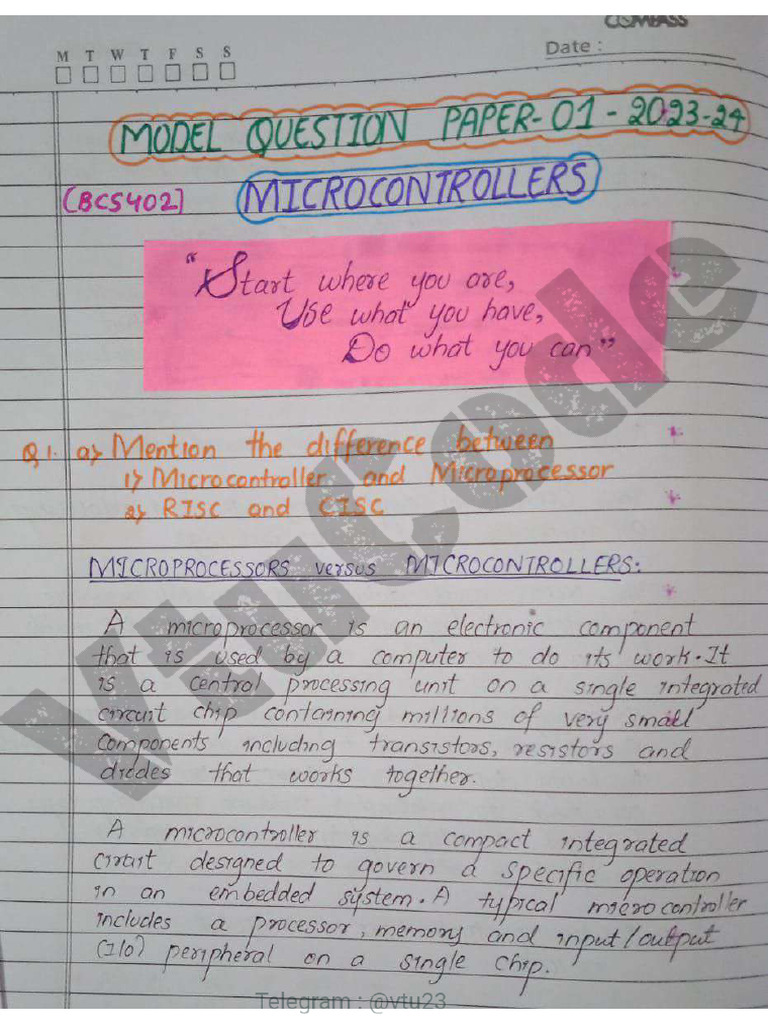 COMPASS
M T W T F S S
Date :
MODEL QUESTION PAPER-01-2023-24
(BCS402] MICROCONTROLLERS
"Start where you are,
Use what you have,
Do what you can"
Q1. a) Mention the difference between
1) Microcontroller and Microprocessor
2) RISC and CISC
MICROPROCESSORS versus MICROCONTROLLERS:
A microprocessor is an electronic component
that is used by a computer to do its work. It
is a central processing unit on a single integrated
circuit chip containing millions of very small
components including transistors, resistors and
diodes that works together.
A microcontroller is a compact integrated
circuit designed to govern a specific operation
in an embedded system. A typical microcontroller
includes a processor, memory and input/output
(I/O) peripheral on a single chip.
Vtucode
Telegram : @vtu23